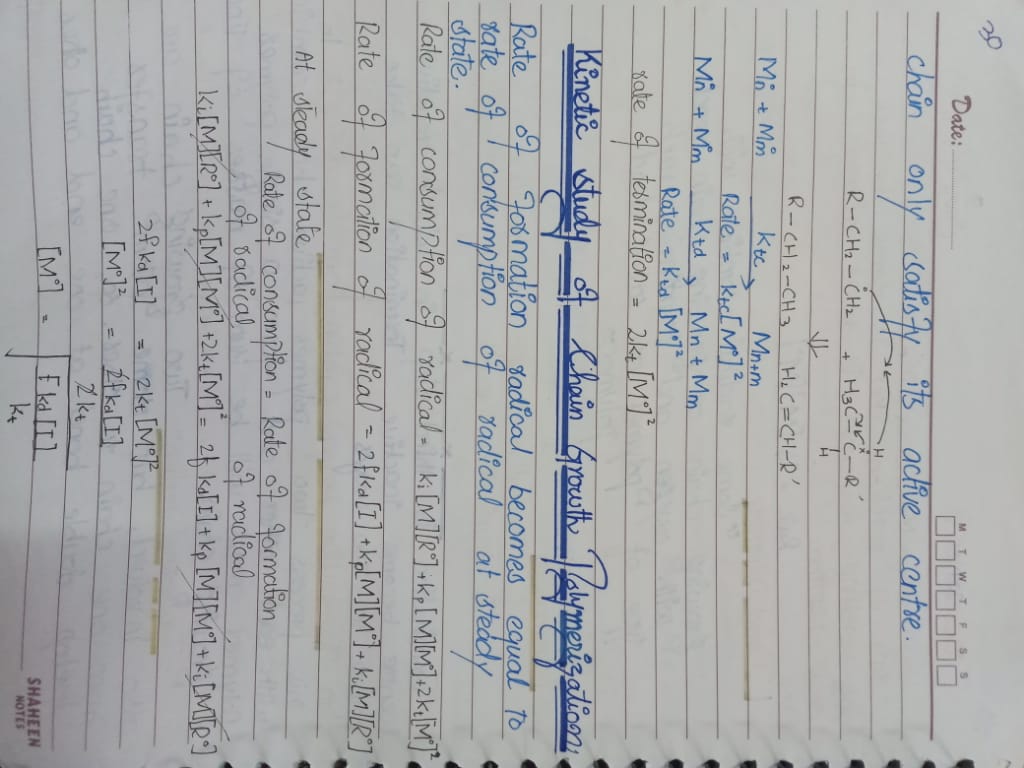 30
Date:
M T W T F S S
chain only satisfy its active centre.
R-CH₂-ĊH₂ + H₃C=C-R'
H
H
⇓
R-CH₂-CH₃ H₂C=CH-R'
Mn° + Mm° ktc→ Mn+m
Rate = ktc[M°]²
Mn° + Mm° Ktd→ Mn + Mm
Rate = Ktd [M°]²
rate of termination = 2kt[M°]²
Kinetic study of Chain Growth Polymerization:
Rate of formation radical becomes equal to
rate of consumption of radical at stedy
state.
Rate of consumption of radical = ki[M][R°]+kp[M][M°]+2kt[M°]²
Rate of formation of radical = 2fkd[I]+kp[M][M°]+ki[M][R°]
At steady state
Rate of consumption = Rate of formation
of radical of radical
ki[M][R°] + kp[M][M°]+2kt[M°]² = 2f kd[I]+kp[M][M°]+ki[M][R°]
2fkd[I] = 2kt[M°]²
[M°]² = 2fkd[I]
2kt
[M°] = √ f kd[I]
kt
SHAHEEN
NOTES